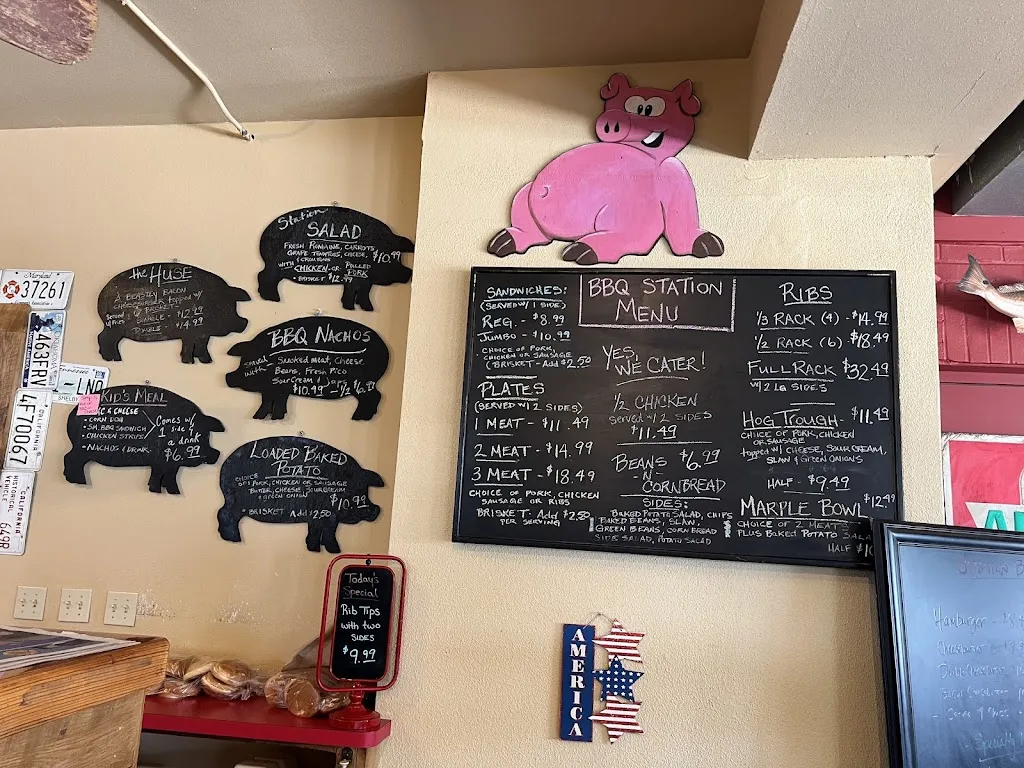 Station
SALAD
FRESH ROMAINE, CARROTS,
GRAPE TOMATOES, CHEESE,
CROUTONS
WITH PULLED
CHICKEN OR PORK
$10.99
• BRISKET • $12.99
the HUSE
CHEESEBURGER topped w/
BRISKET
Served
w/ Fries
SINGLE - $12.99
DOUBLE - $14.99
BBQ NACHOS
served
with
Smoked Meat, Cheese
Beans, Fresh Pico
Sour Cream &
$10.49 - 1/2 $6.99
KID'S MEAL
& CHEESE
• CORN DOG
• SM. BBQ SANDWICH
• CHICKEN STRIPS
• NACHOS
Comes w/
1 side &
a drink
$6.99
LOADED BAKED
POTATO
CHOICE
OF PORK, CHICKEN OR SAUSAGE
BUTTER, CHEESE, SOUR CREAM,
GREEN ONION
$10.99
• BRISKET Add $2.50
Maryland
37261
463ERV
LNQ
SHELBY
4FT0067
CALIFORNIA
CALIFORNIA
HISTORICAL
VEHICLE
649R
Today's
Special
Rib Tips
with two
SIDES
$9.99
BBQ STATION
MENU
SANDWICHES:
(SERVED W/ 1 SIDE)
REG. - $8.99
JUMBO - $10.99
CHOICE OF PORK,
CHICKEN OR SAUSAGE
(BRISKET - Add $2.50
PLATES
(SERVED W/ 2 SIDES)
1 MEAT - $11.49
2 MEAT - $14.99
3 MEAT - $18.49
CHOICE OF PORK, CHICKEN
SAUSAGE OR RIBS
BRISKET - Add $2.50
PER SERVING
YES,
WE CATER!
1/2 CHICKEN
Served w/ 2 SIDES
$11.49
BEANS $6.99
-N-
CORNBREAD
SIDES:
BAKED POTATO SALAD, CHIPS
BAKED BEANS, SLAW,
GREEN BEANS, CORN BREAD
SIDE SALAD, POTATO SALAD
RIBS
1/3 RACK (4) - $14.99
1/2 RACK (6) - $18.49
FULL RACK $32.49
W/ 2 LG SIDES
HOG TROUGH - $11.49
CHOICE OF PORK, CHICKEN
OR SAUSAGE
topped w/ CHEESE, SOUR CREAM,
SLAW & GREEN ONIONS
HALF - $9.49
MARPLE BOWL $12.99
CHOICE OF 2 MEATS
PLUS BAKED POTATO SALA
HALF $10
AMERICA
Hamburger